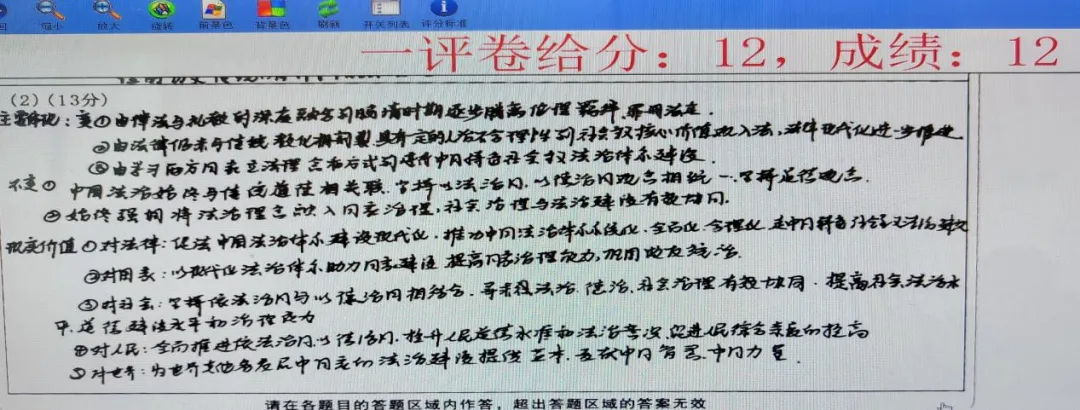 缩小 放大 旋转 前景色 背景色 刷新 开关列表 评分标准
一评卷给分：12，成绩：12
（2）（13分）
主要体现：变①由律法与礼教的深度融合到晚清时期逐步脱离伦理，罪刑法定。
②由法律仍未与传统教化相割裂，具有一定的人治不合理性到社会主义核心价值观入法，法律现代化进一步推进
③由学习西方国家立法理念和方式到坚持中国特色社会主义法治体系建设。
不变①中国法治始终与传统道德相关联，坚持以法治国，以德治国观点相统一，坚持
②始终强调将法治理念融入国家治理，社会治理与法治建设有效协同。
现实价值①对法律：促法中国法治体系建设现代化，推动中国法治体系系统化，全面化，合理化，是中国特色社会主义
②对国家：以现代化法治体系助力国家建设，提高国家治理能力，巩固政友统治
③对社会：坚持依法治国与以德治国相结合，寻求法治，德治，社会治理有效协同，提高社会法治水
平，道德建设水平和治理能力
④对人民：全面推进依法治国，以德治国，提升人民道德水准和法治意识，促进人民综合素质的提高
⑤对世界：为世界其他各发展中国家的法治建设提供蓝本，贡献中国智慧，中国力量
请在各题目的答题区域内作答，超出答题区域的答案无效